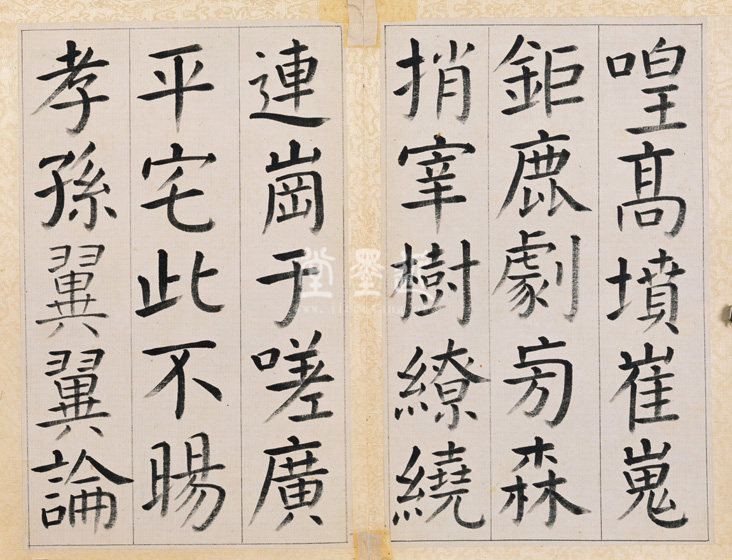 喤高墳崔嵬
鉅鹿劇森
捎宰樹繚繞
連崗于嗟廣
平宅此不暘
孝孫翼翼論